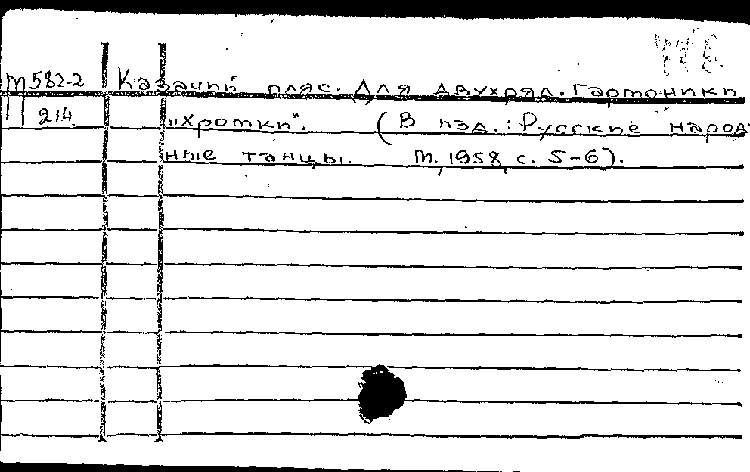 М 582-2 Казачий пляс. Для двухряд. гармоники
214 „хромки". (В изд.: Русские народ-
ные танцы. М, 1958, с. 5-6).